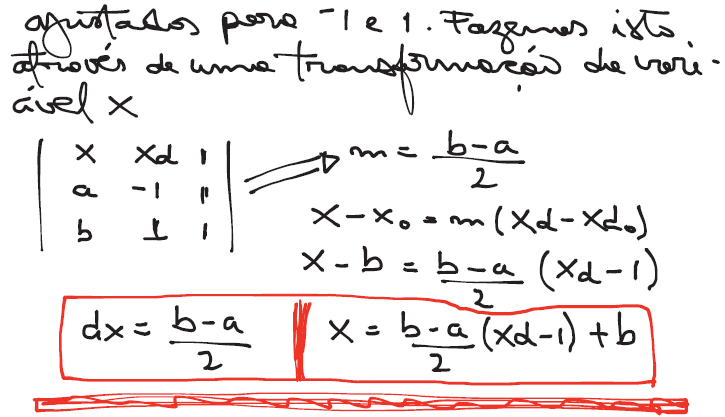 ajustados para -1 e 1. Fazemos isto
através de uma transformação de vari-
ável x
| x xd 1 |
| a -1 1 | ⟹ m = (b-a)/2
| b 1 1 |
x - x₀ = m(xd - xd₀)
x - b = (b-a)/2 (xd - 1)
dx = (b-a)/2
x = (b-a)/2 (xd-1) + b